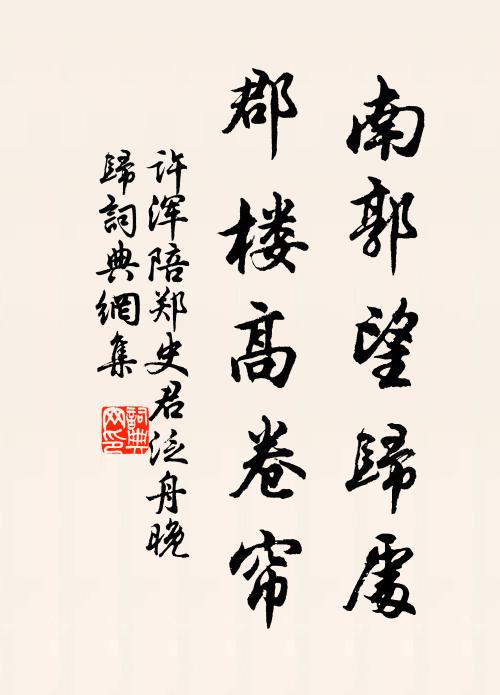 南郭望歸處
郡楼高卷帘
许浑陪郑史君泛舟晚
歸詞典網集
詞典
网印